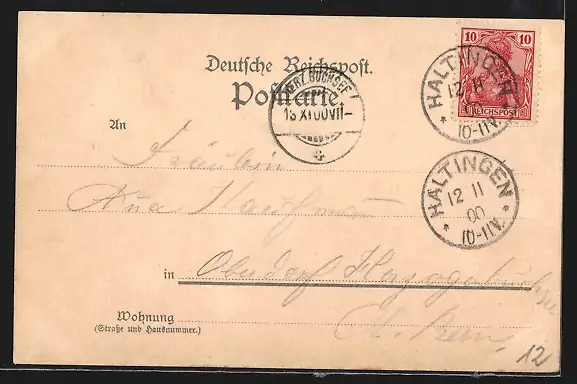 10 10
REICHSPOST
Deutsche Reichspost.
Postkarte
HERZ.BUCHSEE
13 XI 00 VII-
HALTINGEN
12 11
00
* 10-11V. *
An
Fräulein
HALTINGEN
12 11
00
* 10-11V. *
in Oberdorf Herzogenbuchsee
Wohnung
(Straße und Hausnummer.)
Kt. Bern.
12